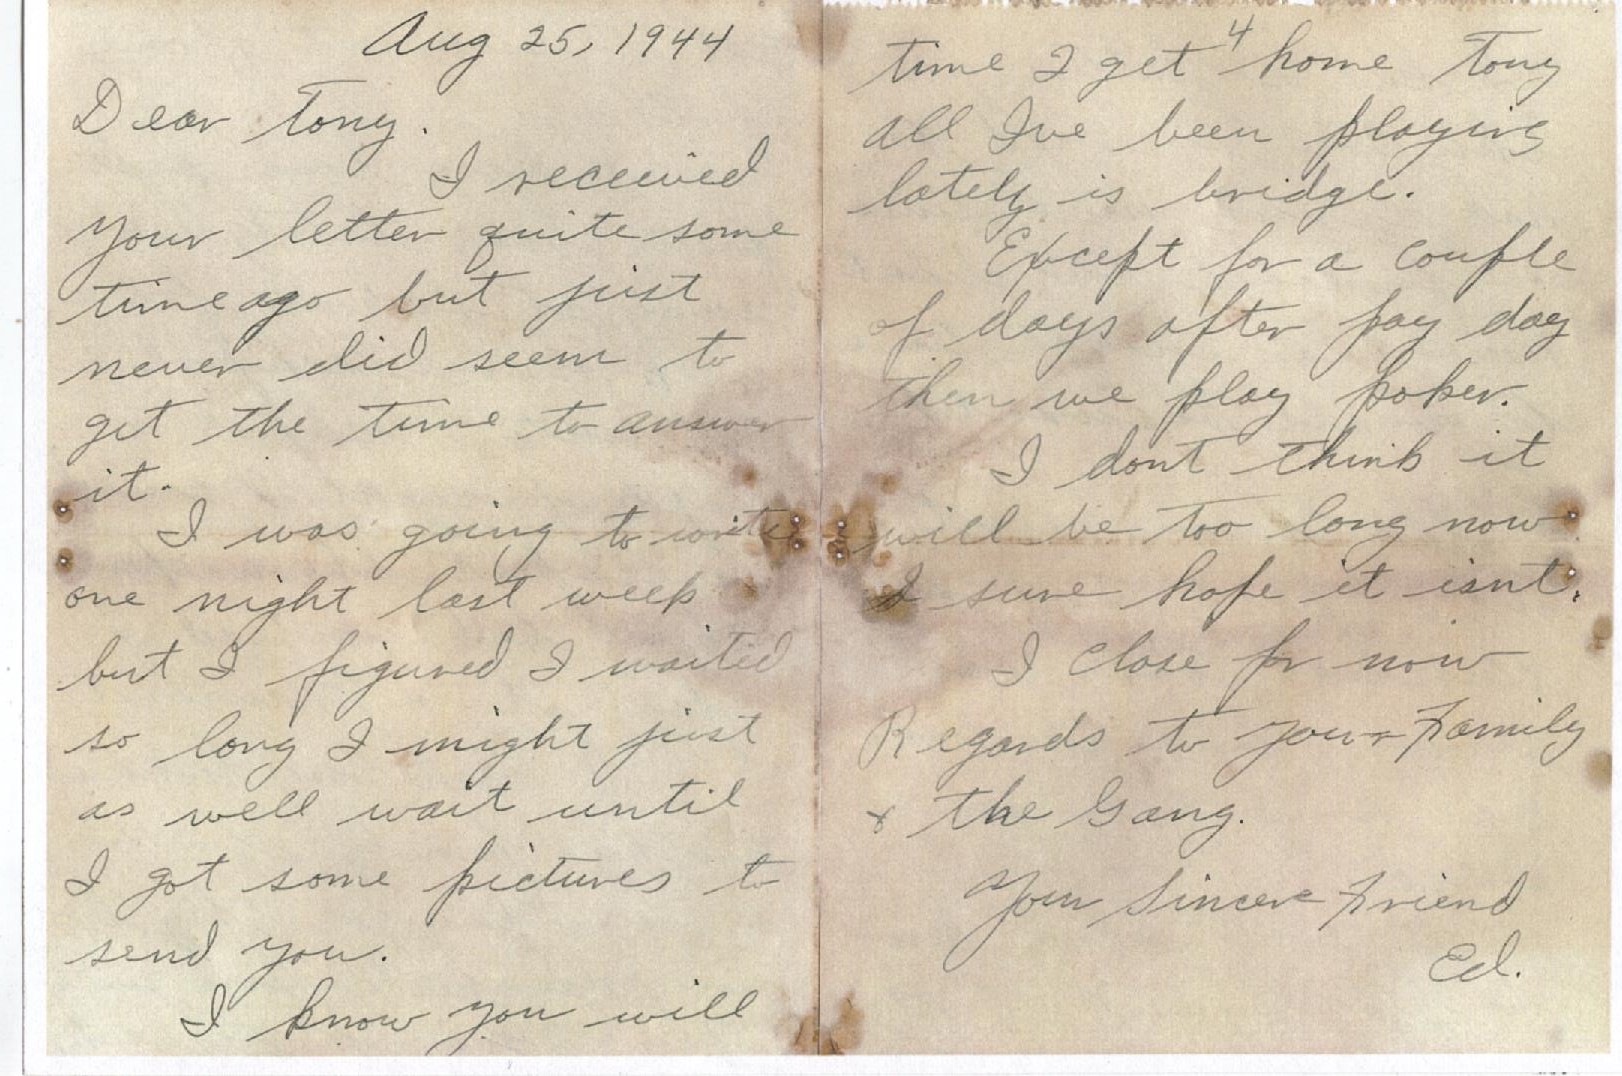 Aug 25, 1944
Dear Tony.
I received
your letter quite some
time ago but just
never did seem to
get the time to answer
it.
I was going to write
one night last week
but I figured I waited
so long I might just
as well wait until
I got some pictures to
send you.
I know you will
4
time I get home Tony
all Ive been playing
lately is bridge.
Except for a couple
of days after pay day
then we play poker.
I dont think it
will be too long now
I sure hope it isnt.
I close for now
Regards to your Family
& the Gang.
Your Sincere Friend
Ed.